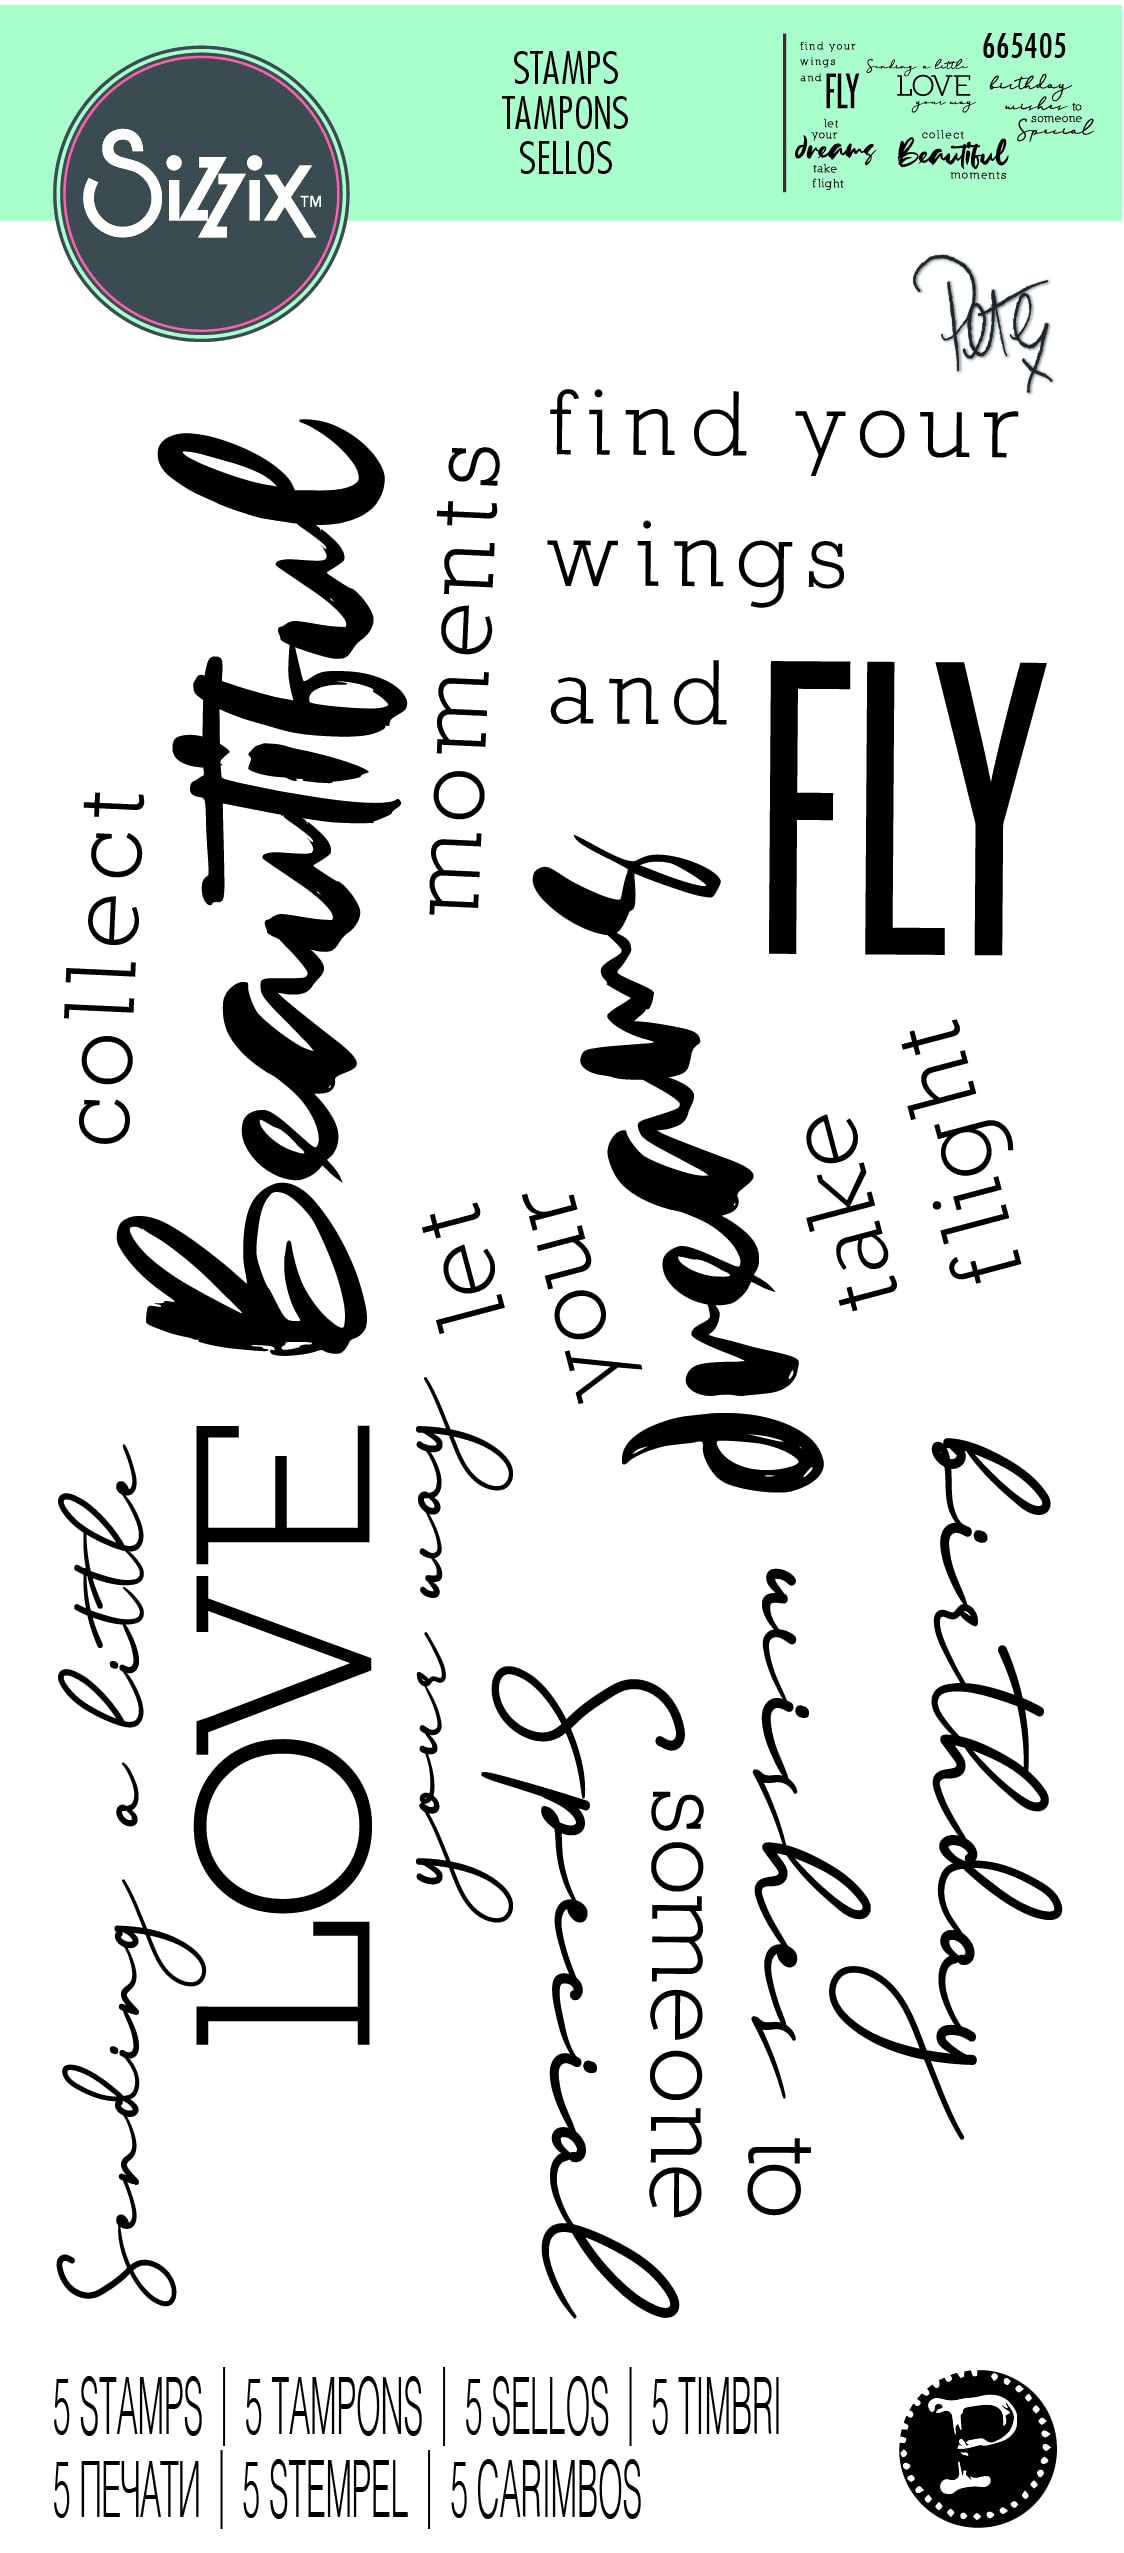 Sizzix™
STAMPS
TAMPONS
SELLOS
find your
wings
and FLY
Sending a little
LOVE
your way
665405
birthday
wishes to
someone
Special
let
your
dreams
take
flight
collect
Beautiful
moments
Pete x
collect
Beautiful
moments
find your
wings
and FLY
let
your
dreams
take
flight
Sending a little
LOVE
your way
birthday
wishes to
someone
Special
5 STAMPS | 5 TAMPONS | 5 SELLOS | 5 TIMBRI
5 ПЕЧАТИ | 5 STEMPEL | 5 CARIMBOS
P